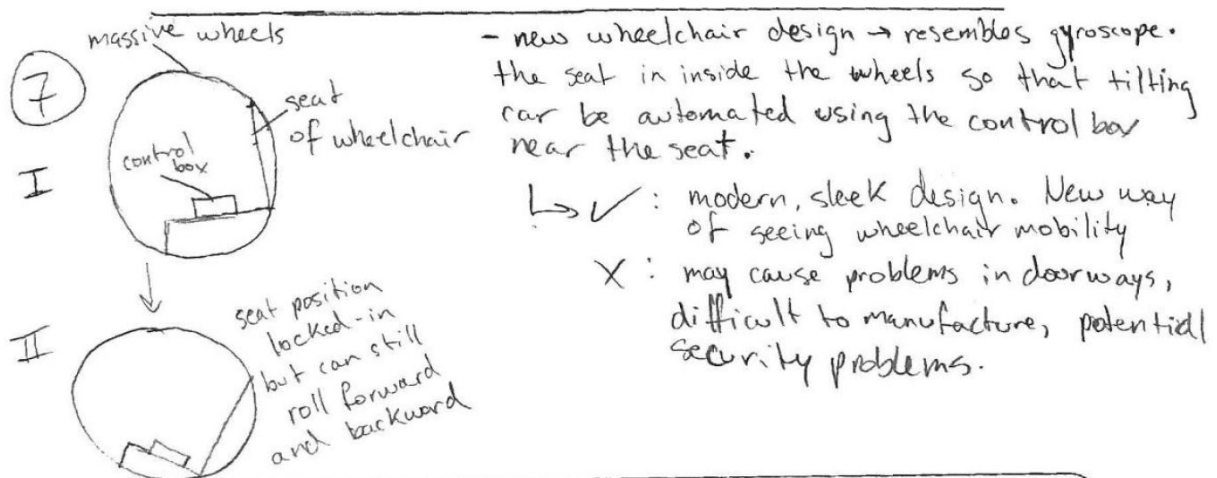 massive wheels
7
I
seat
of wheelchair
control
box
II
seat position
locked-in
but can still
roll forward
and backward
- new wheelchair design → resembles gyroscope.
the seat in inside the wheels so that tilting
can be automated using the control box
near the seat.
↳ ✓ : modern, sleek design. New way
of seeing wheelchair mobility
X : may cause problems in doorways,
difficult to manufacture, potential
security problems.